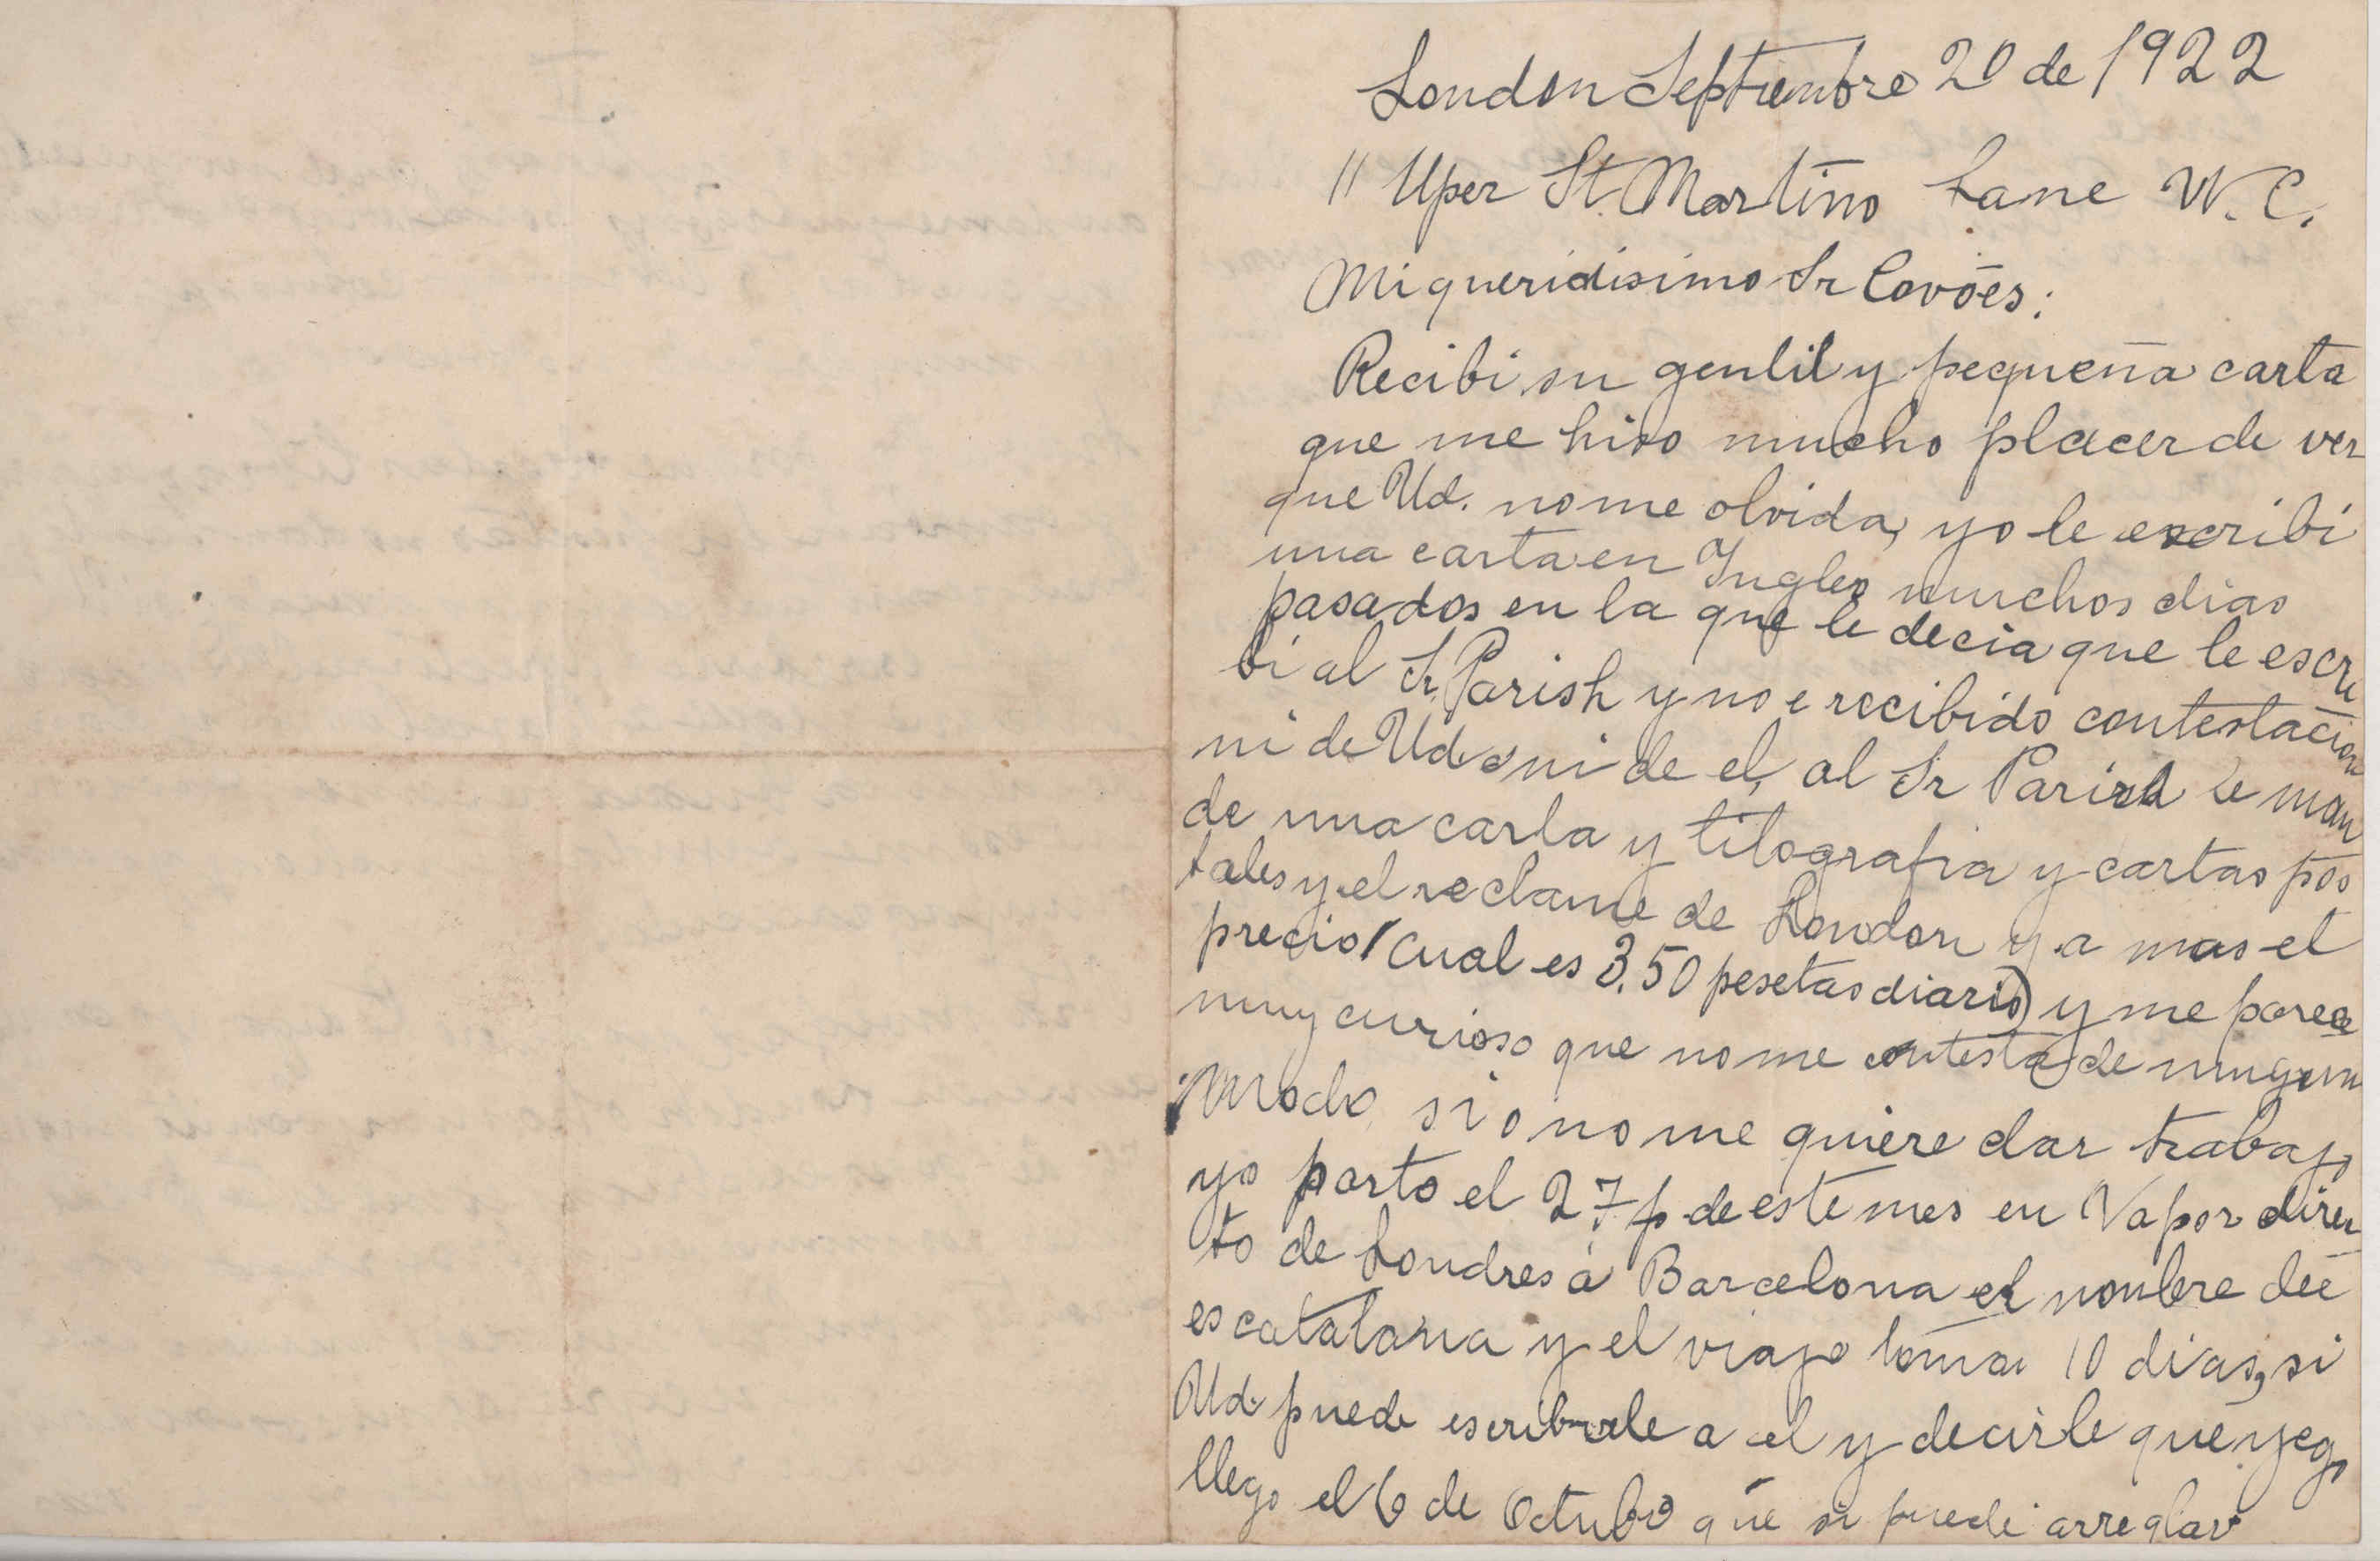 London Septiembre 20 de 1922
11 Uper St. Martins Lane W.C.
Mi queridisimo Sr Covões:
Recibi su gentil y pequeña carta
que me hiso mucho placer de ver
que Ud. no me olvida, yo le escribi
una carta en Ingles muchos dias
pasados en la que le decia que le escri
bi al Sr. Parish y no e recibido contestacion
ni de Ud. ni de el, al Sr Parish le man
de una carta y litografia y cartas pos
tales y el reclame de London y a mas el
precio (cual es 3.50 pesetas diario) y me parece
muy curioso que no me contesta de ningun
modo, si o no me quiere dar trabajo
yo parto el 27 p de este mes en Vapor direc
to de Londres á Barcelona el nombre del
es catalana y el viaje toma 10 dias, si
Ud. puede escribirle a el y decirle que yego
llego el 6 de Octubre que si puede arreglar